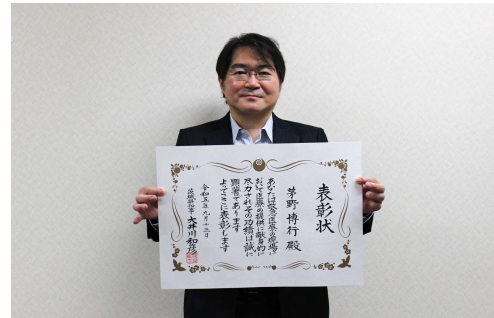 表彰状
茅野 博行 殿
あなたは緊急医療の現場に
おいて医療の提供に献身的に
尽力されその功績は誠に
顕著であります
よってここに表彰します
令和五年九月十三日
茨城県知事 大井川和彦